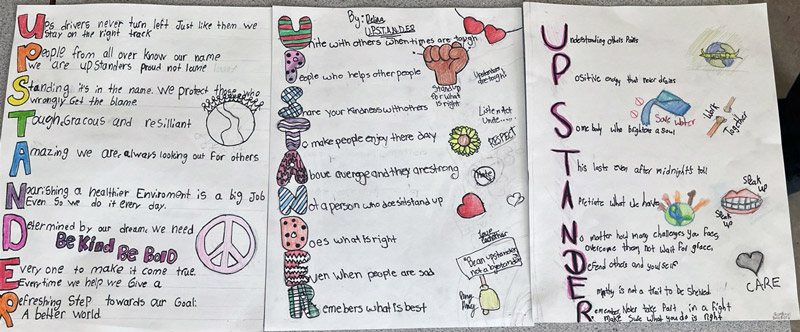 Ups drivers never turn left Just like them we
stay on the right track
People from all over know our name
we are upstanders proud not lame
Standing: it's in the name. We protect those who
wrongly Get the blame.
Tough, Gracous and resilliant
Amazing we are, always looking out for others
Nourishing a healthier Enviroment is a big Job
Even so we do it every day.
Determined by our dream: we need
Be Kind Be Bold
Every one to make it come true.
Every time we help we Give a
Refreshing step towards our Goal:
A better world
By:
UPSTANDER
Unite with others when times are tough
People who helps other people
Stand up
for what
is right
Upstanders
are tough!
Share your kindness with others
Listen Act
Unite......
To make people enjoy there day
RESPECT
Above average and they are strong
Hate
Not a person who doesint stand up
Does what is right
Love
each other
Even when people are sad
"Be an upstander
not a bystander"
Ring
Ring
Remembers what is best
UPSTANDER
Understanding others Pains
Positive energy that never drains
Save Water
Work
Together
Somebody who brightens a soul
This lasts even after midnights toll
Speak
up
what we have
Speak
up
No matter how many challenges you face,
overcome them not wait for grace,
Defend others and yourself
Empathy is not a trait to be shelved
CARE
Remember Never take Part in a fight
make sure what you do is right